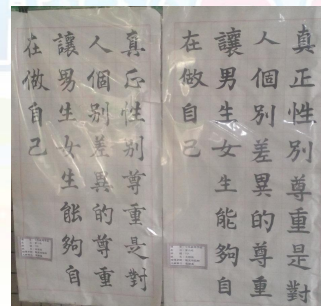 真正性別尊重是對
人個別差異的尊重
讓男生女生能夠自
在做自己
真正性別尊重是對
人個別差異的尊重
讓男生女生能夠自
在做自己